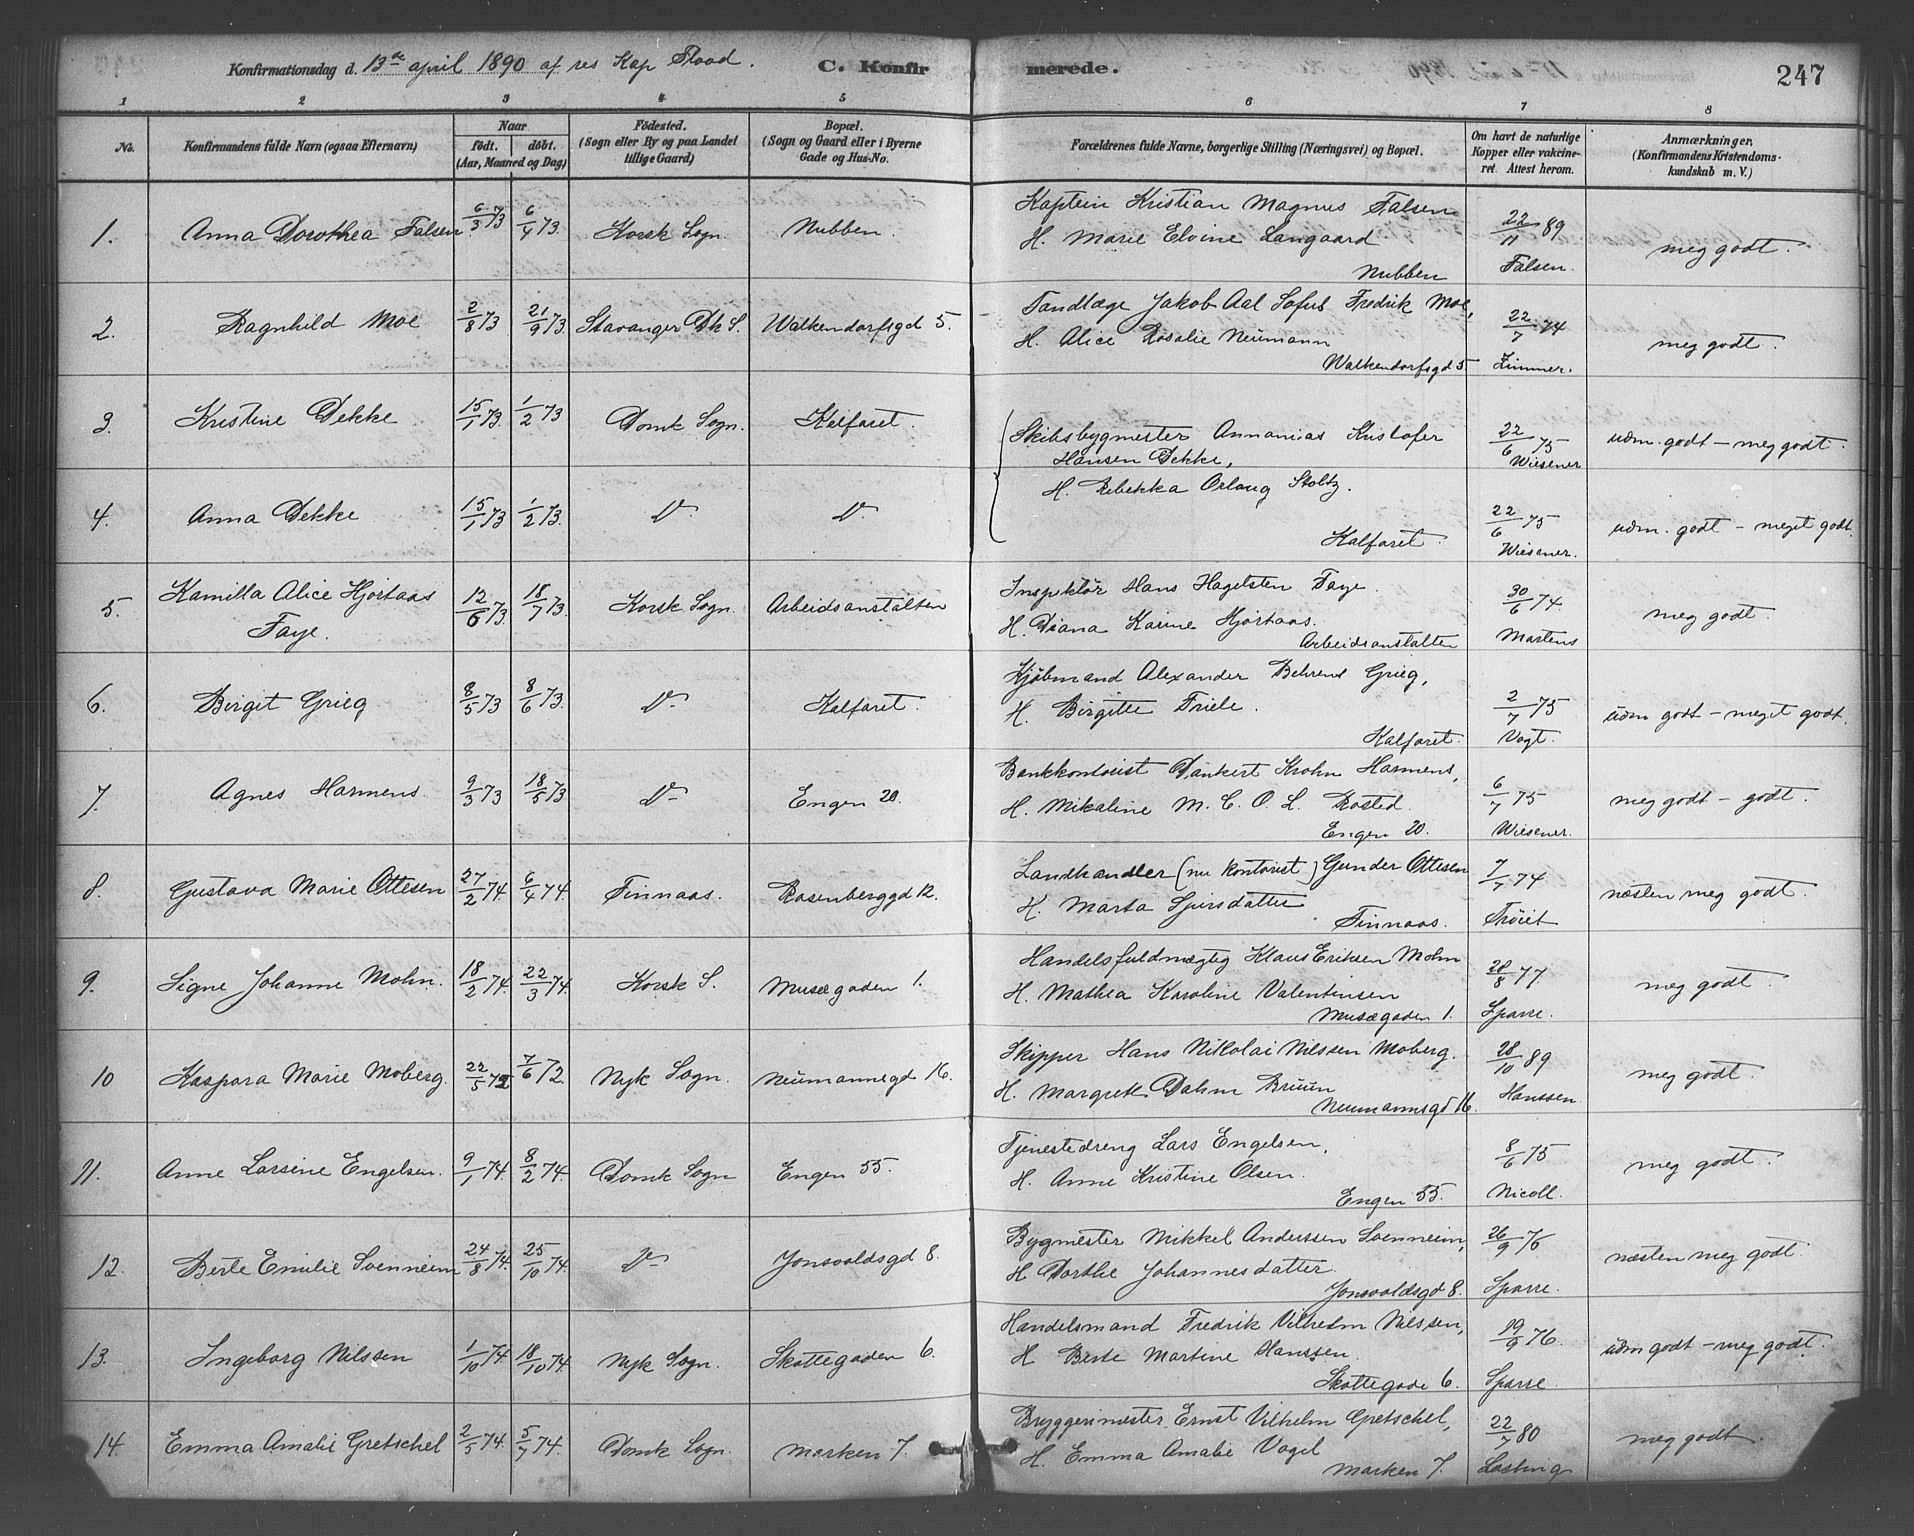 Konfirmationsdag d. 13de april 1890 af res Kap Flood. C. Konfirmerede. 247
1 2 3 4 5 6 7 8
No. Konfirmandens fulde Navn (ogsaa Efternavn) Naar født. døbt. (Aar, Maaned og Dag) Födested. (Sogn eller By og paa Landet tillige Gaard) Bopæl. (Sogn og Gaard eller i Byerne Gade og Hus-No. Forældrenes fulde Navne, borgerlige Stilling (Næringsvei) og Bopæl. Om havt de naturlige Kopper eller vakcineret. Attest herom. Anmærkninger, (Konfirmandens Kristendomskundskab m. V.)
1. Anna Dorothea Falsen 6/3 73 6/4 73. Korsk Sogn. Nubben. Kaptein Kristian Magnus Falsen
H. Marie Elvine Langaard 22/11 89 meg godt.
Nubben Falsen.
2. Ragnhild Moe 2/8 73 21/9 73. Stavanger Dk S. Walkendorfsgd 5. Tandlæge Jakob Aal Sofus Fredrik Moe,
H. Alice Rosalie Neumann 22/7 74 meg godt.
Walkendorfsgd 5. Zimmer.
3. Kristine Dekke 15/1 73. 1/2 73 Domk Sogn. Kalfaret. Skibsbygmester Annanias Kristofer 22/6 75 udm. godt – meg godt.
Hansen Dekke, Wiesener
H. Rebekka Orlaug Stoltz.
4. Anna Dekke 15/1 73 1/2 73. D° D° 22/6 75 udm. godt – meget godt.
Kalfaret. Wiesener.
5. Kamilla Alice Hjortaas Faye. 12/6 73 18/7 73. Korsk Sogn. Arbeidsanstalten Inspektör Hans Hagelsten Faye. 30/6 74 meg godt.
H. Diana Karine Hjortaas.
Arbeidsanstalten Martens
6. Birget Grieg 8/5 73 8/6 73. D° Kalfaret. Kjöbmand Alexander Behrens Grieg,
H. Birgitte Friele. 2/7 75 udm godt – meget godt.
Kalfaret. Vogt.
7. Agnes Harmens. 9/3 73 18/5 73 D° Engen 20. Bankkontorist Dankert Krohn Harmens,
H. Mikaline M. C. O. L. Rosted. 6/7 75 meg godt – godt.
Engen 20. Wiesener.
8. Gustava Marie Ottesen 27/2 74. 6/4 74. Finnaas. Rosenberggd 12. Landhandler (nu kontorist) Gunder Ottesen 7/7 74 næsten meg godt.
H. Marta Sjursdatter
Finnaas. Tröiet
9. Signe Johanne Mohn. 18/2 74. 22/3 74. Korsk S. Musægaden 1. Handelsfuldmægtig Klaus Eriksen Mohn 28/8 77 meg godt.
H. Mathea Karoline Valentinsen
Musægaden 1. Sparre.
10 Kaspara Marie Moberg. 22/5 72 7/6 72. Nyk Sogn. Neumannsgd 16. Skipper Hans Nikolai Nilssen Moberg. 28/10 89 meg godt.
H. Margrete Dahm Bruun
Neumannsgd 16. Hanssen.
11. Anne Larsine Engelsen. 9/1 74. 8/2 74. Domk Sogn Engen 55. Tjenestedreng Lars Engelsen, 8/6 75 meg godt.
H. Anne Kristine Olsen.
Engen 55. Nicoll.
12. Berte Emilie Svenneim 24/8 74. 25/10 74. D° Jonsvoldsgd 8. Bygmester Mikkel Anderssen Svenneim, 26/9 76 næsten meg godt.
H Dorthe Johannesdatter.
Jonsvoldsgd 8. Sparre.
13. Ingeborg Nilssen 1/10 74 18/10 74. Nyk Sogn. Skottegaden 6. Handelsmand Fredrik Vilhelm Nilssen, 19/9 76. udm godt – meg godt.
H Berte Martine Hanssen
Skottegade 6. Sparre.
14. Emma Amalie Gretschel 2/5 74. 5/7 74. Domk Sogn. Marken 7. Bryggerimester Ernst Vilhelm Gretschel, 22/7 80 meg godt.
H. Emma Amalie Vogel
Marken 7.